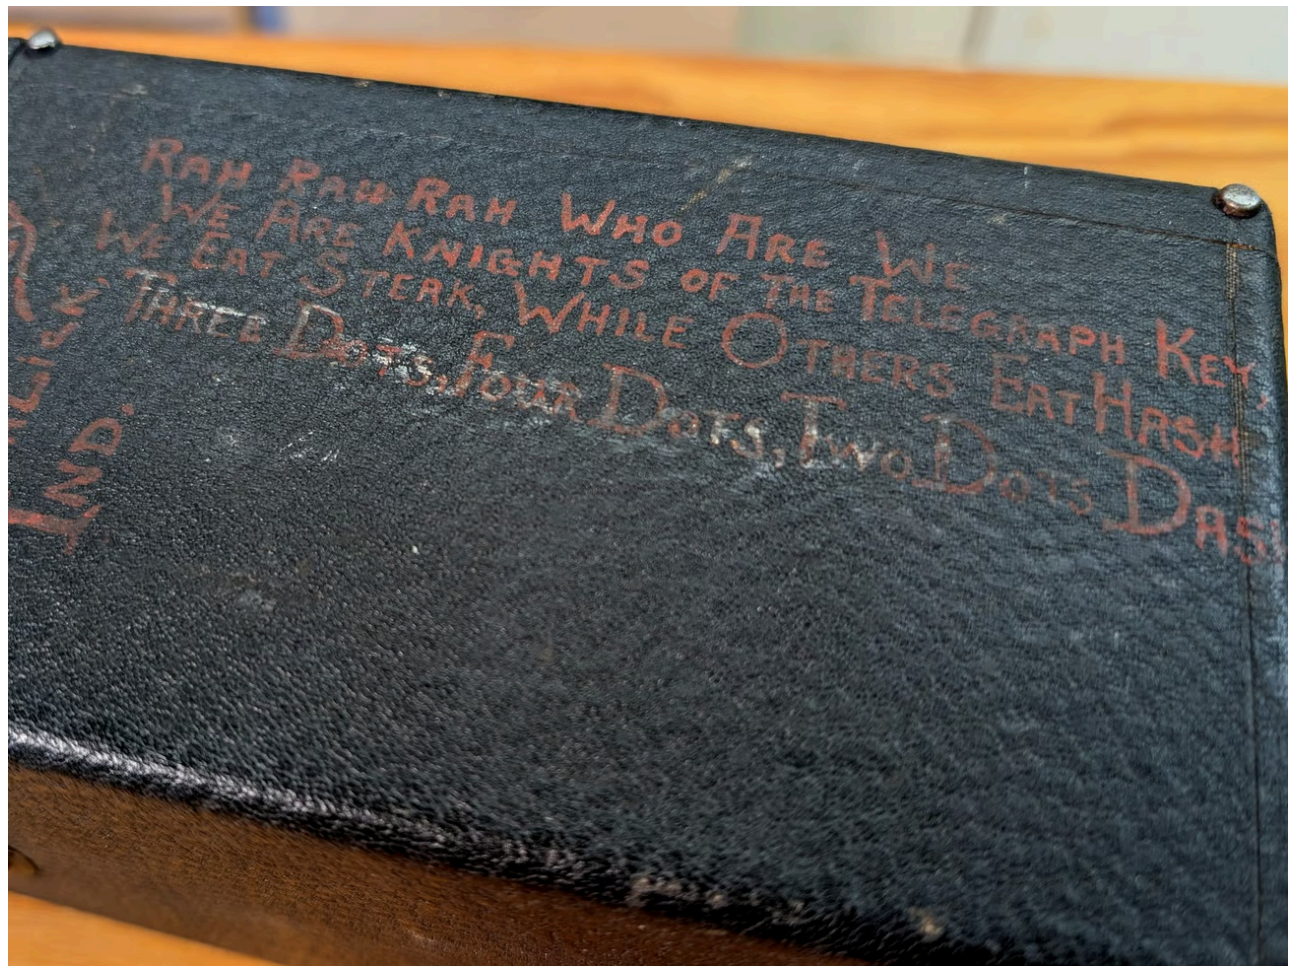 Rah Rah Rah Who Are We
We Are Knights of the Telegraph Key,
We Eat Steak, While Others Eat Hash
Three Dots, Four Dots, Two Dots Dash
Ind.